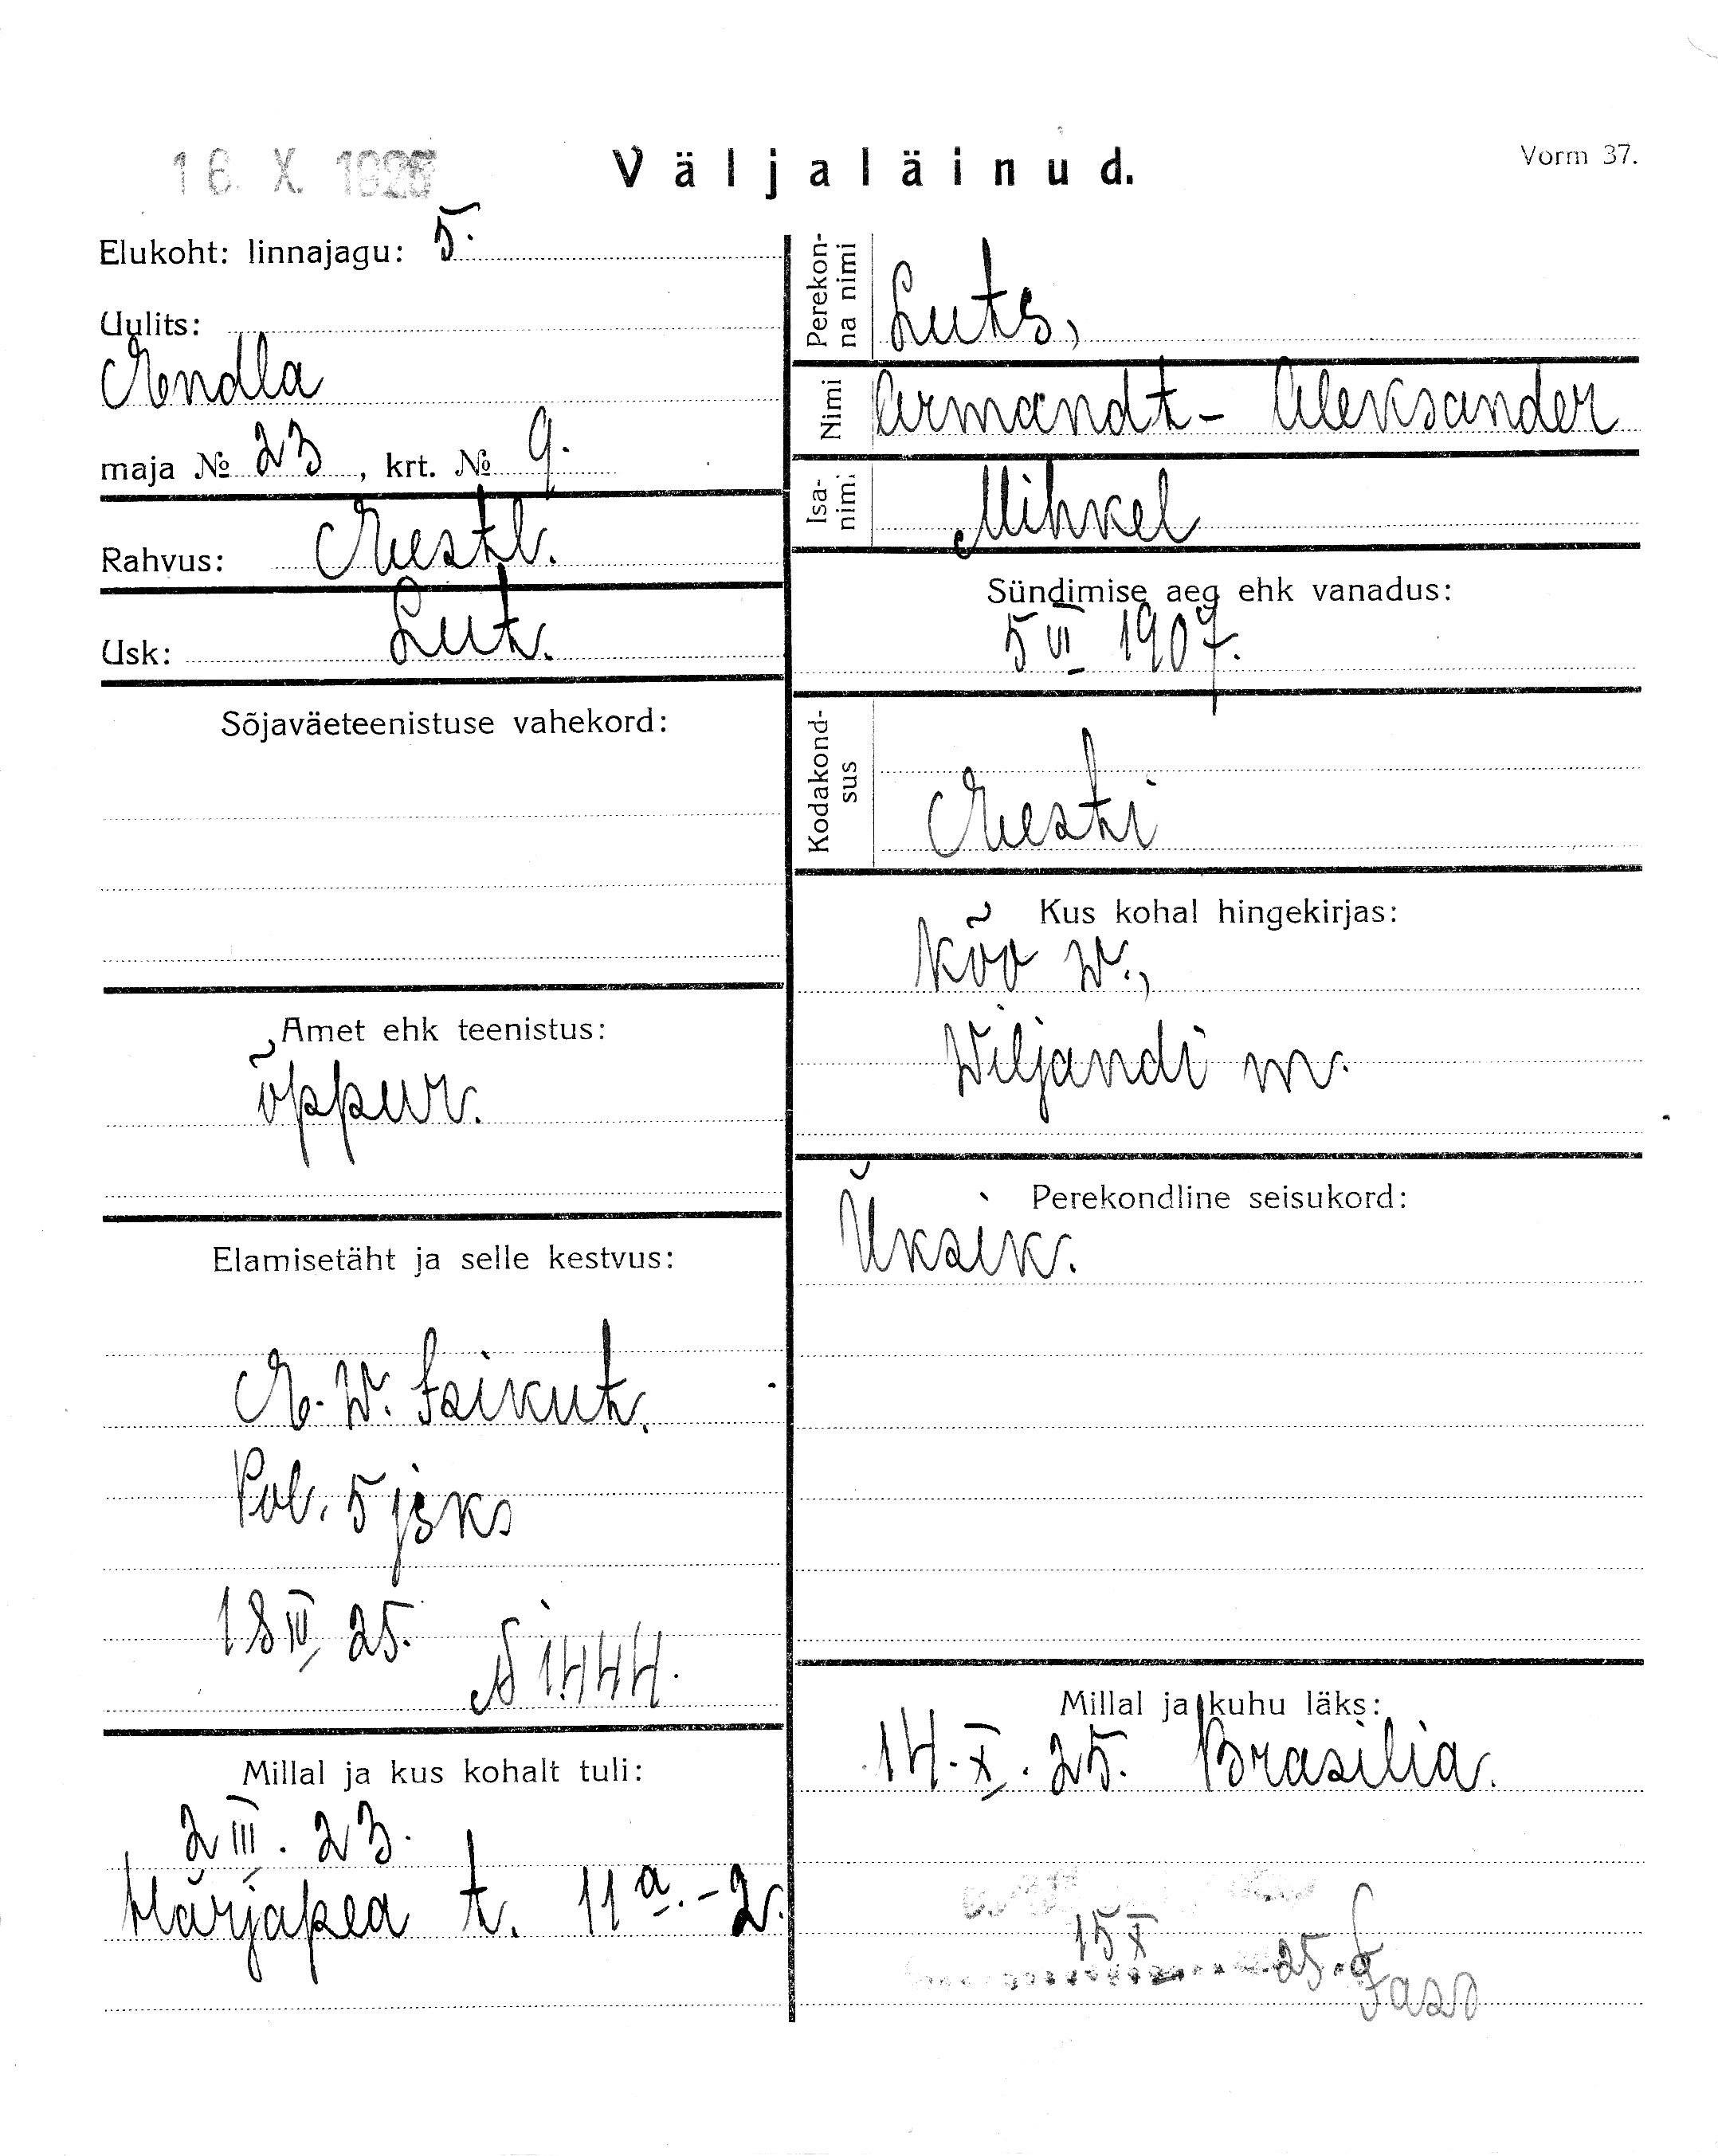 16. X. 1925
Väljaläinud.
Vorm 37.
Elukoht: linnajagu: 5.
Uulits:
Endla
maja № 23, krt. № 9.
Rahvus: Eestl.
Usk: Lut.
Sõjaväeteenistuse vahekord:
Amet ehk teenistus:
õppur.
Elamisetäht ja selle kestvus:
E. W. Isikut.
Pol. 5 jsks
18 IV 25.
N 1444.
Millal ja kus kohalt tuli:
2 III. 23.
Härjapea t. 11a.-2.
Perekon-
na nimi
Luts,
Nimi
Armandt- Aleksander
Isa-
nimi
Mihkel
Sündimise aeg ehk vanadus:
5 VI 1907.
Kodakond-
sus
Eesti
Kus kohal hingekirjas:
Kõo w.,
Wiljandi m.
Perekondline seisukord:
Üksik.
Millal ja kuhu läks:
14. X. 25. Brasilia.
15 X
25.